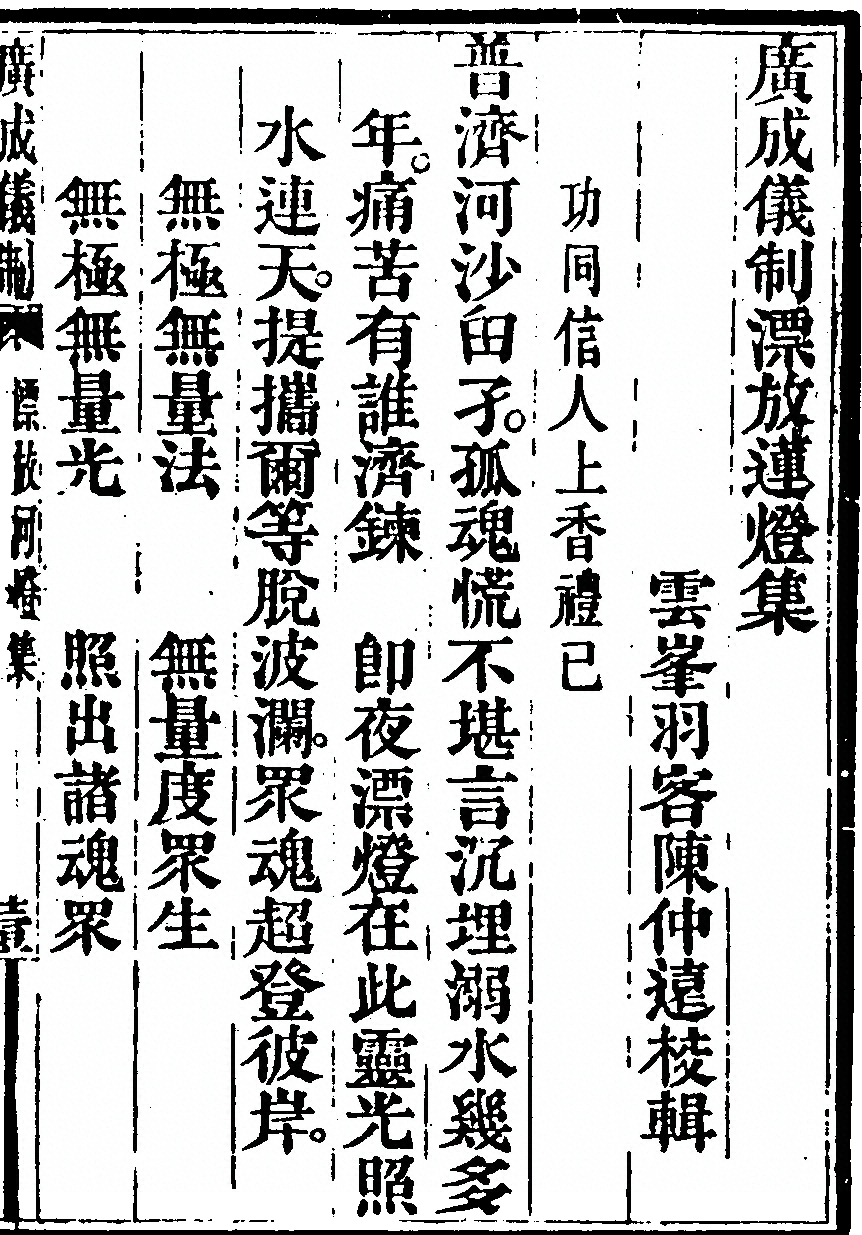 廣成儀制漂放蓮燈集
雲峯羽客陳仲遠校輯
功同信人上香禮已
普濟河沙田孑。孤魂慌不堪言沉埋溺水幾多
年。痛苦有誰濟鍊　卽夜漂燈在此靈光照
水連天。提攜爾等脫波瀾。眾魂超登彼岸。
無極無量法　無量度眾生
無極無量光　照出諸魂眾
廣成儀制　漂放河燈集　壹